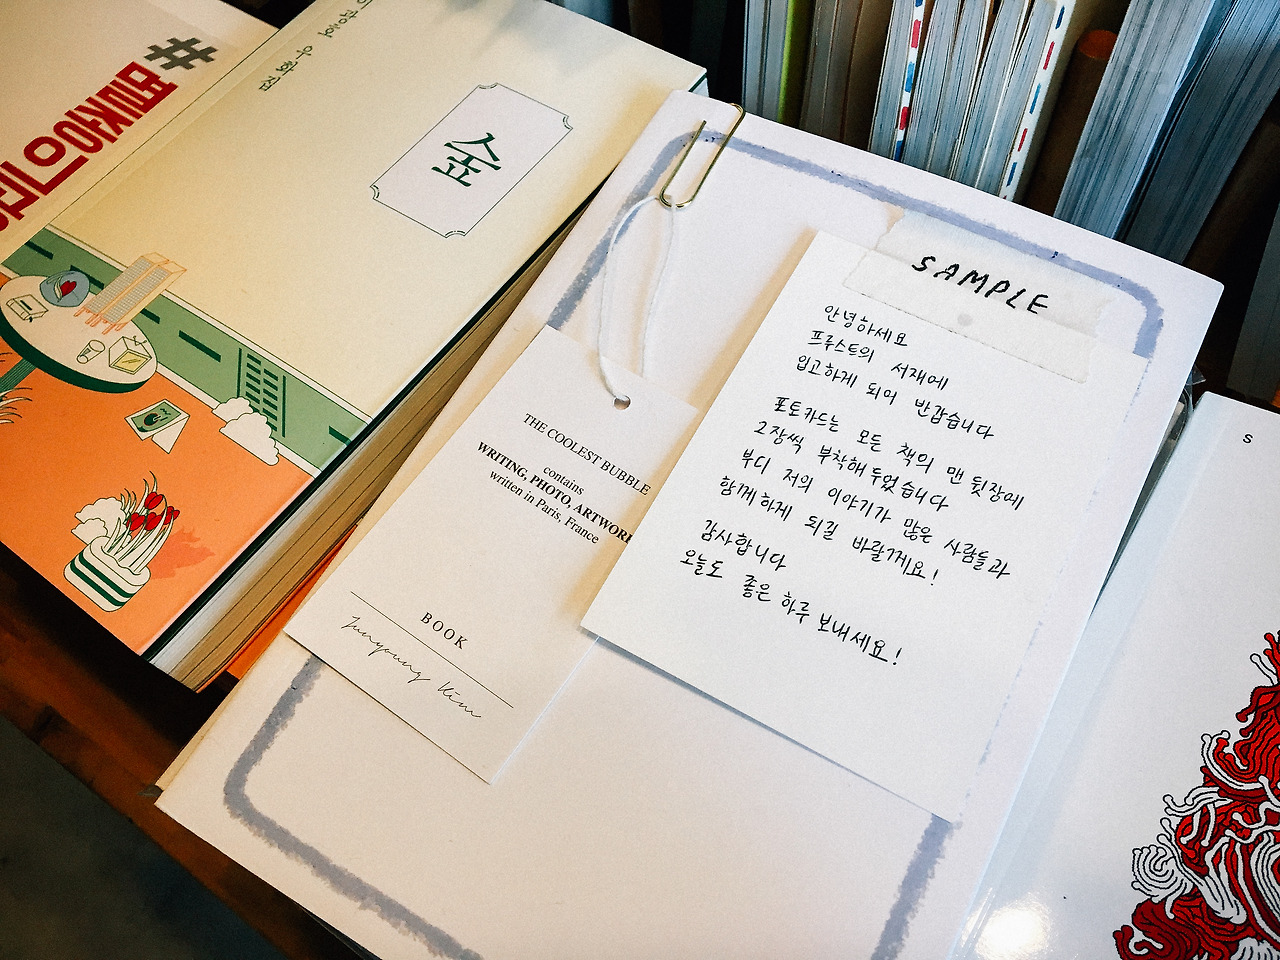 #
이광호 우화집
숲
SAMPLE
안녕하세요
프루스트의 서재에
입고하게 되어 반갑습니다
포토카드는 모든 책의 맨 뒷장에
2장씩 부착해 두었습니다
부디 저의 이야기가 많은 사람들과
함께하게 되길 바랄게요!
감사합니다
오늘도 좋은 하루 보내세요!
THE COOLEST BUBBLE
contains
WRITING, PHOTO, ARTWORK
written in Paris, France
BOOK
S